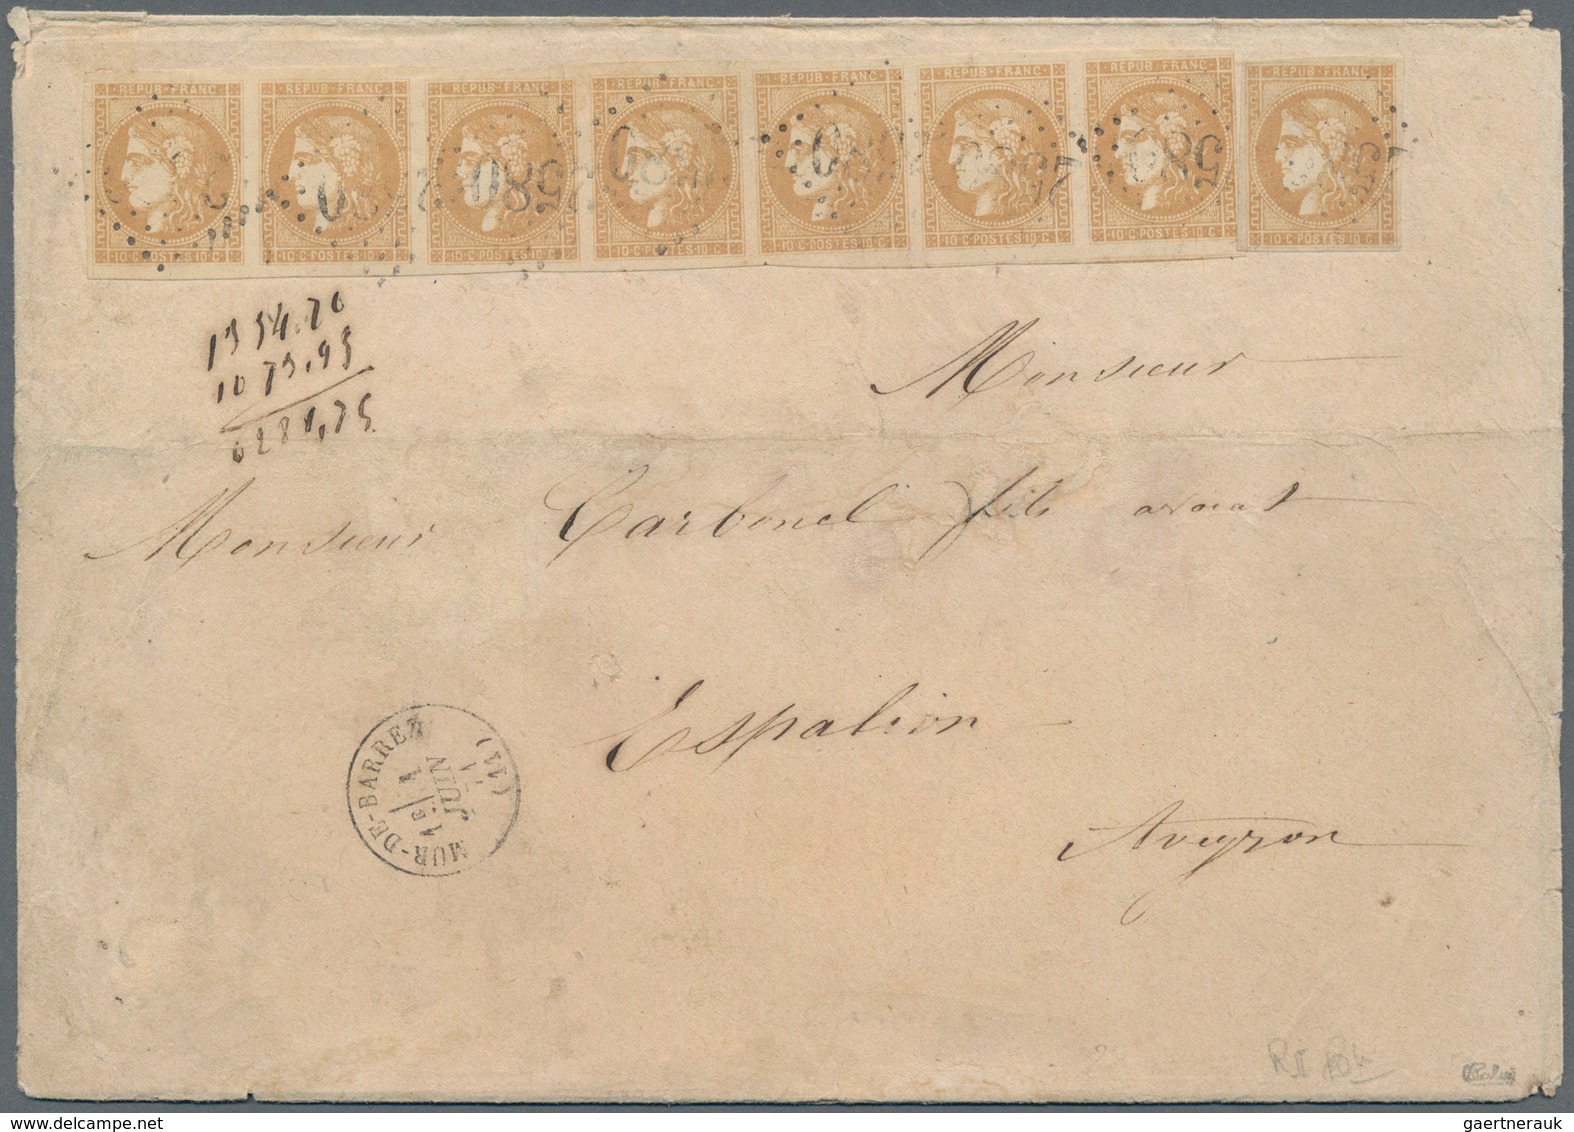 REPUB·FRANC REPUB·FRANC REPUB·FRANC REPUB·FRANC REPUB·FRANC REPUB·FRANC REPUB·FRANC REPUB·FRANC
0 2580 0 0 2580 580
10·C·POSTES·10·C 10·C·POSTES·10·C 10·C·POSTES·10·C 10·C·POSTES·10·C 10·C·POSTES·10·C 10·C·POSTES·10·C 10·C·POSTES·10·C 10·C·POSTES·10·C
1354.70
1073.95
0281,75
Monsieur
Monsieur Carbonel fils avocat
Espalion
Aveyron
MUR-DE-BARREZ (11)
1E 1
JUIN
71
gaertnerauk